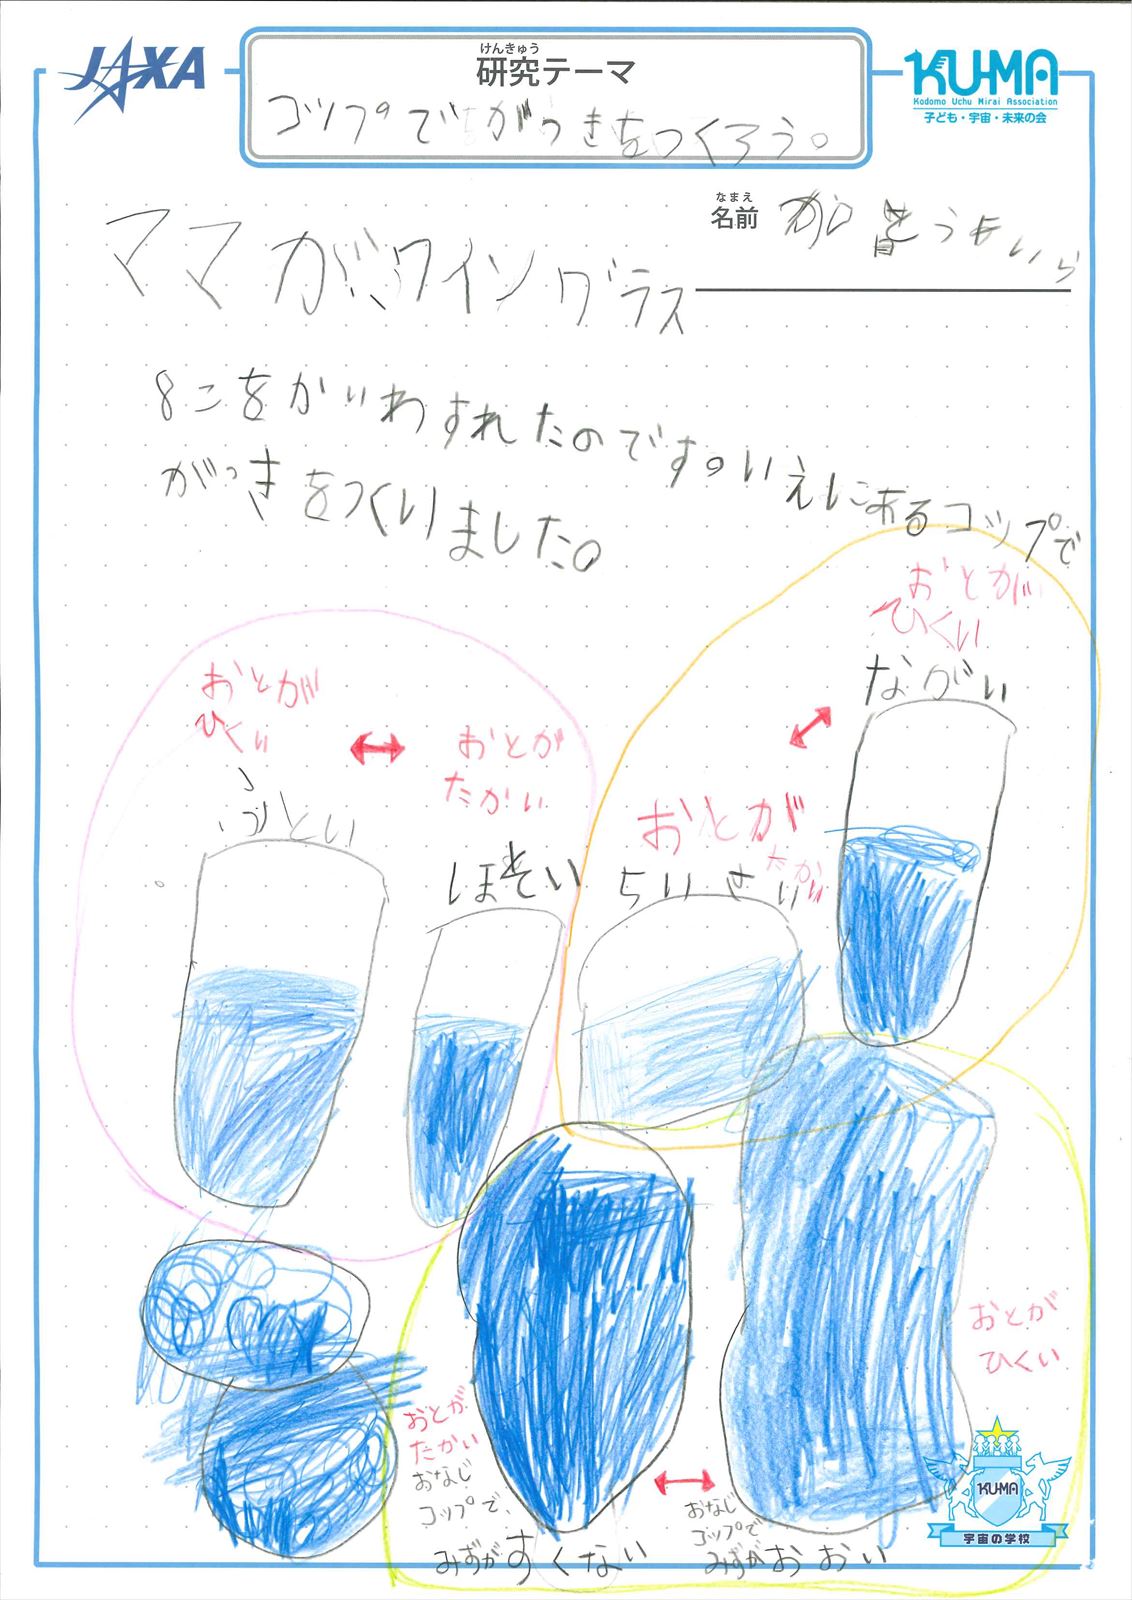 JAXA
けんきゅう
研究テーマ
コップでがっきをつくろう。
KU-MA
Kodomo Uchu Mirai Association
子ども・宇宙・未来の会
なまえ
名前
ママがワイングラス
8こをかいわすれたのです。いえにあるコップで
がっきをつくりました。
おとが
ひくい
ながい
おとが
ひくい
おとが
たかい
ふとい
ほそい
おとが
たかい
ちいさい
おとが
ひくい
おとが
たかい
おなじ
コップで、
みずがすくない
おなじ
コップで
みずがおおい
KU-MA
宇宙の学校